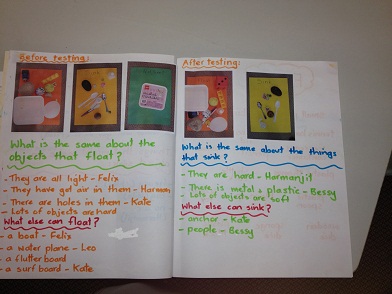 Before testing:
What is the same about the
objects that float?
- They are all light - Felix
- They have got air in them - Harman
- There are holes in them - Kate
- Lots of objects are hard
What else can float?
- a boat - Felix
- a water plane - Leo
- a flutter board
- a surf board - Kate
After testing:
What is the same about the things
that sink?
- They are hard - Harmanjit
- There is metal & plastic - Bessy
- Lots of objects are soft
What else can sink?
- anchor - Kate
- people - Bessy